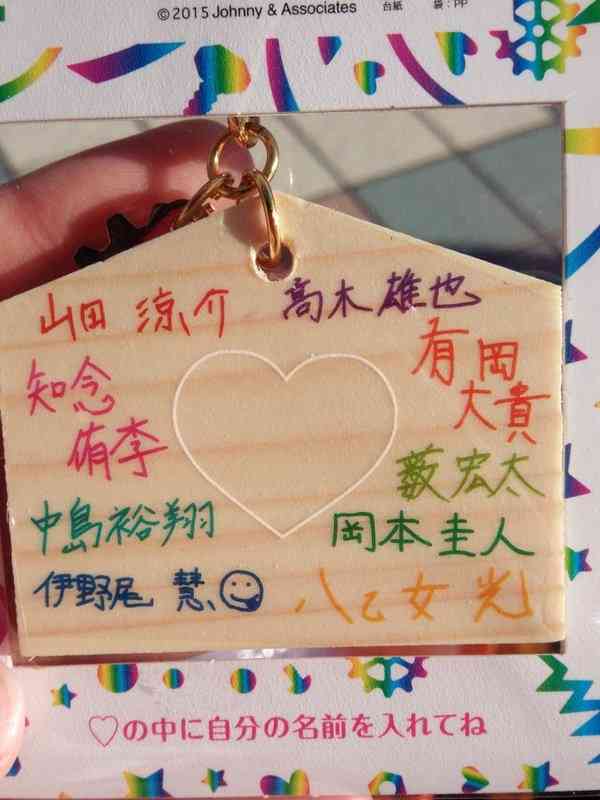 ©2015 Johnny & Associates 台紙 袋：PP
山田 涼介
高木 雄也
有岡
大貴
知念
侑李
薮 宏太
中島裕翔
岡本圭人
伊野尾 慧
八乙女 光
♡の中に自分の名前を入れてね